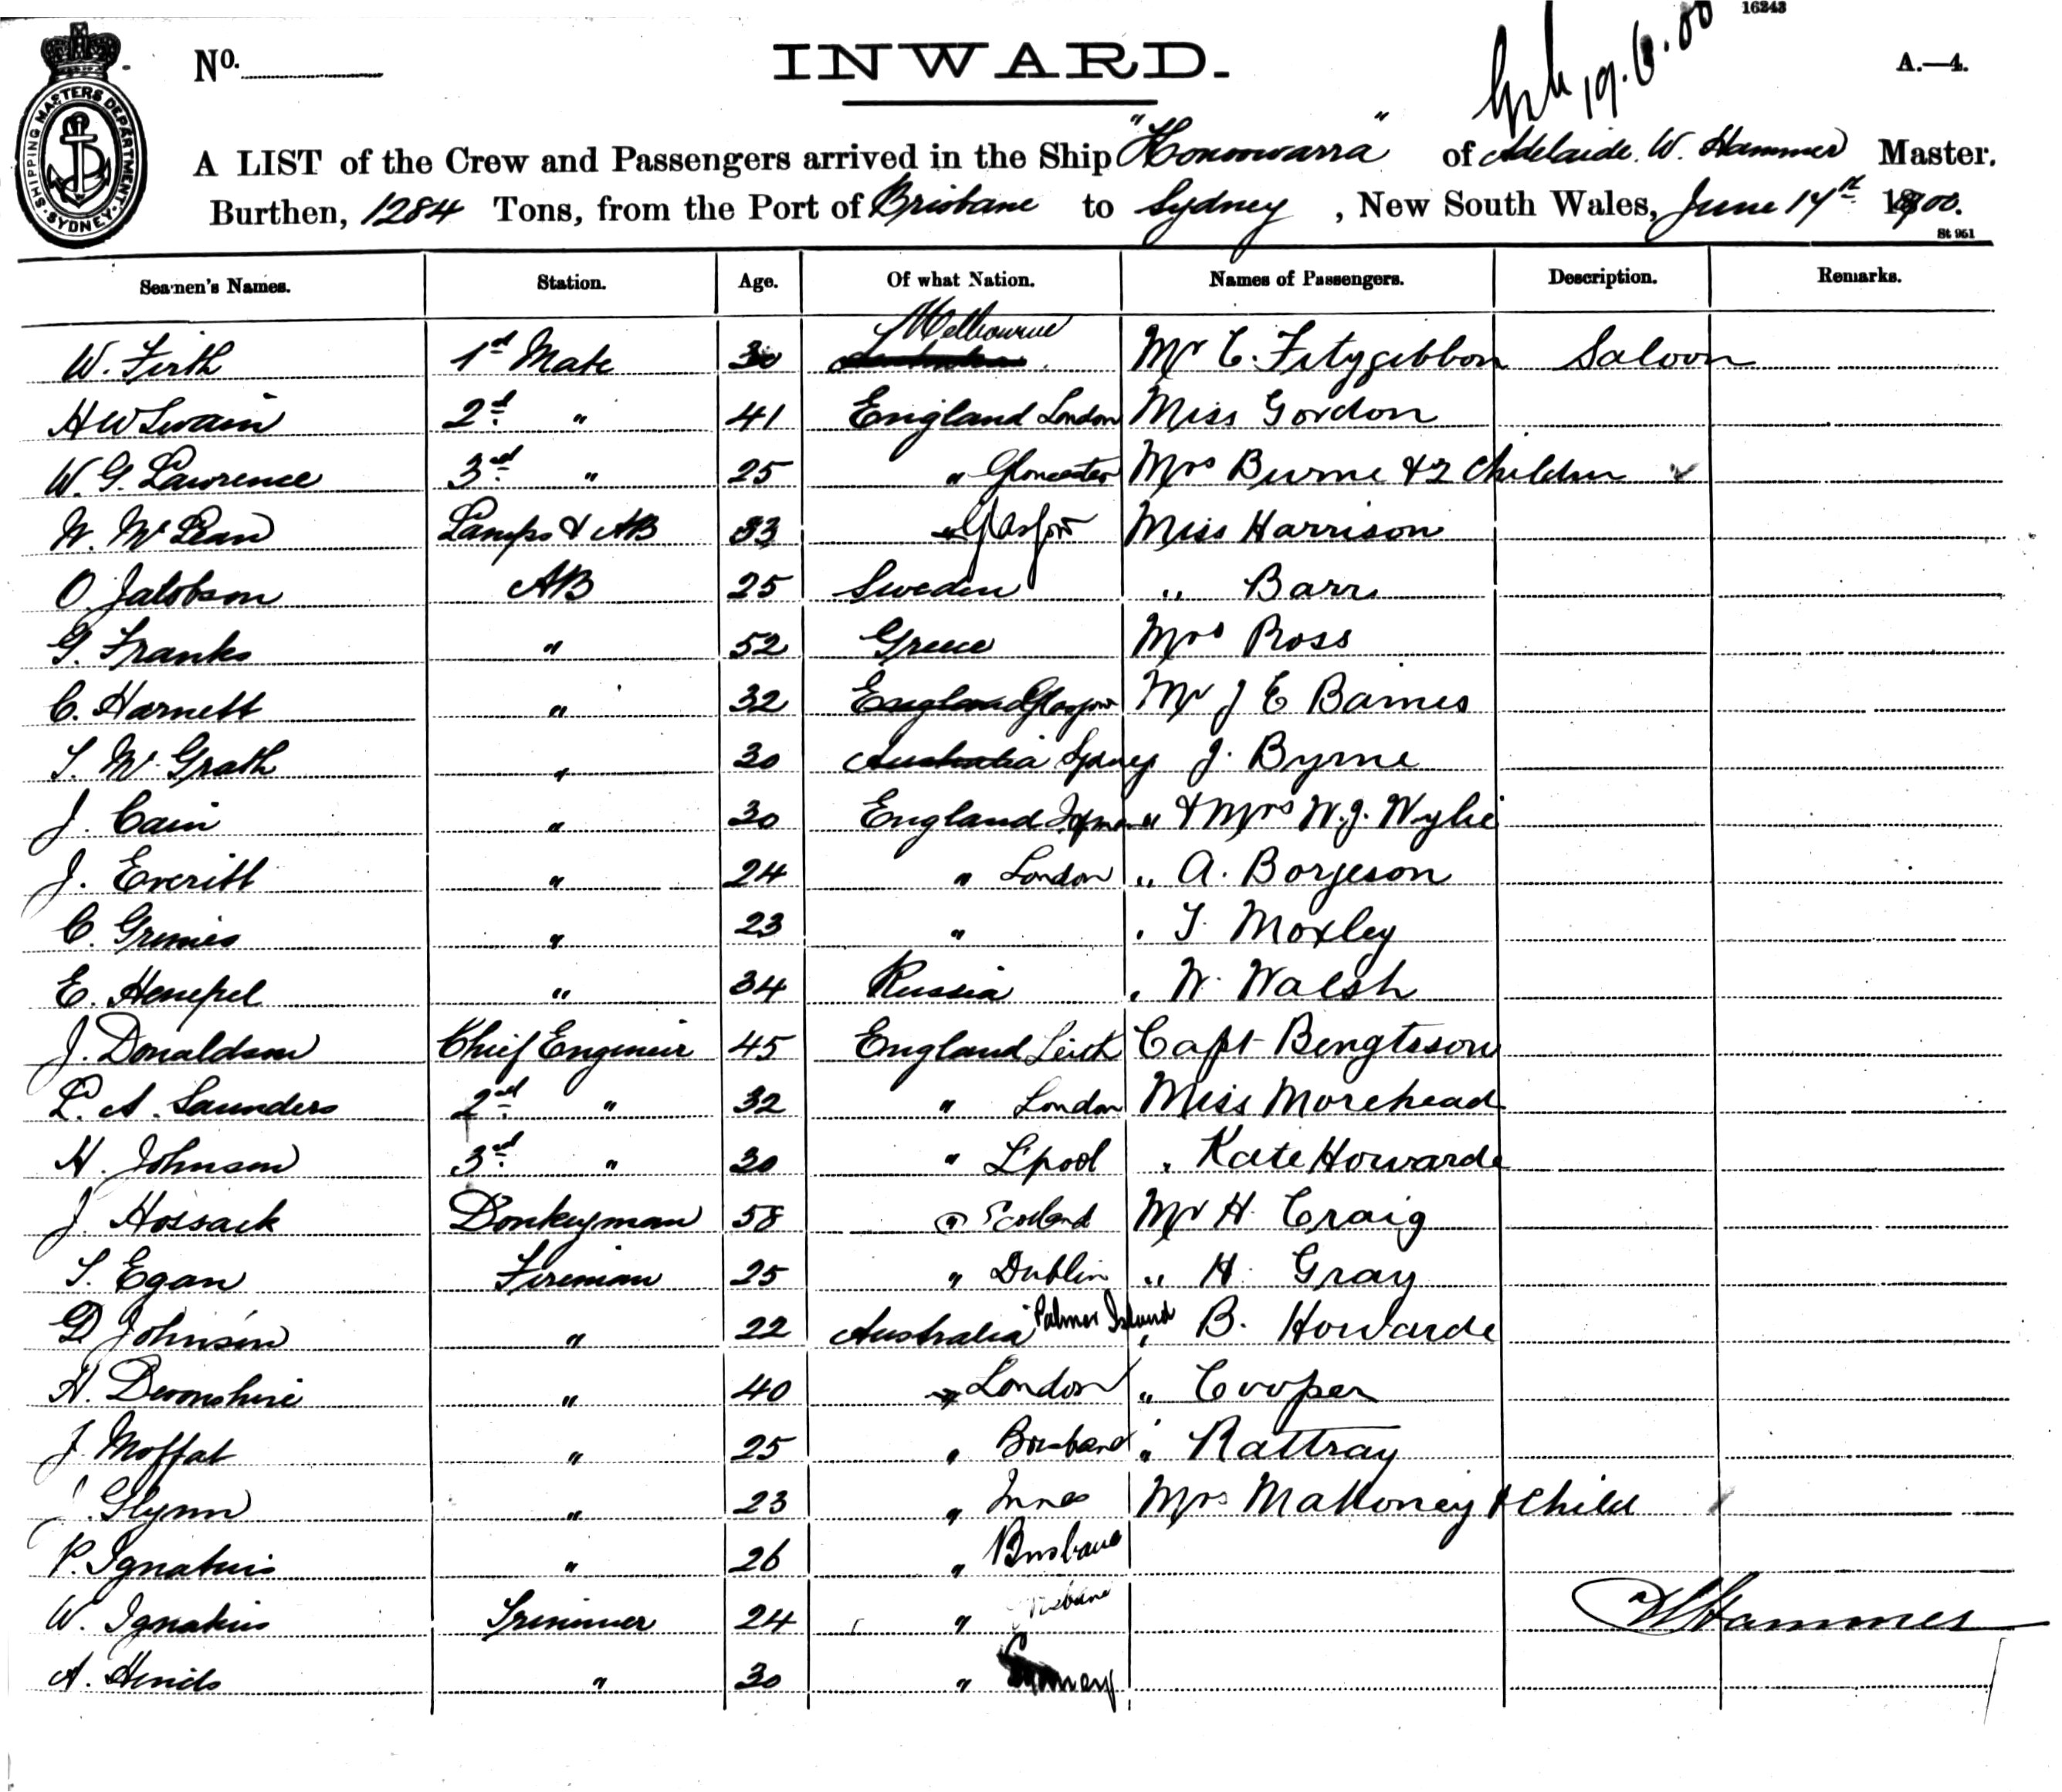 16243
No. INWARD. 19.6.00 A.—4.
SHIPPING MASTERS DEPARTMENT. SYDNEY.
A LIST of the Crew and Passengers arrived in the Ship "Konoowarra" of Adelaide. W. Hammer Master.
Burthen, 1284 Tons, from the Port of Brisbane to Sydney, New South Wales, June 14th 1900.
St 951
Seamen's Names. Station. Age. Of what Nation. Names of Passengers. Description. Remarks.
W. Firth 1st Mate 30 Melbourne Mr C. Fitzgibbon Saloon
H W Swain 2d " 41 England London Miss Gordon
W. G. Lawrence 3rd " 25 " Gloucester Mrs Burne & 2 Children
W. McLean Lamps & AB 33 " Glasgow Miss Harrison
O Jacobson AB 25 Sweden " Barr
G. Franks " 52 Greece Mrs Ross
C. Harnett " 32 England Glasgow Mr J E Barnes
T. McGrath " 30 Australia Sydney J. Byrne
J. Cain " 30 England " & Mrs W. J. Wylie
J. Everitt " 24 " London " A. Borjeson
C. Grimes " 23 " " T. Moxley
E. Hempel " 34 Russia " W. Walsh
J. Donaldson Chief Engineer 45 England Leith Capt Bengtsson
L. A. Saunders 2nd " 32 " London Miss Morehead
H. Johnson 3rd " 30 " L'pool " Kate Howarde
J. Hossack Donkeyman 58 " Scotland Mr H. Craig
T. Egan Fireman 25 " Dublin " H. Gray
D Johnson " 22 Australia Palmer Island " B. Howarde
H. Devonshire " 40 " London " Cooper
J Moffat " 25 " Brisbane " Rattray
Glynn " 23 " Mrs Mahoney & Child
P. Ignatius " 26 " Brisbane
W. Ignatius Trimmer 24 " Brisbane W Hammer
A. Hinds " 30 " Sydney